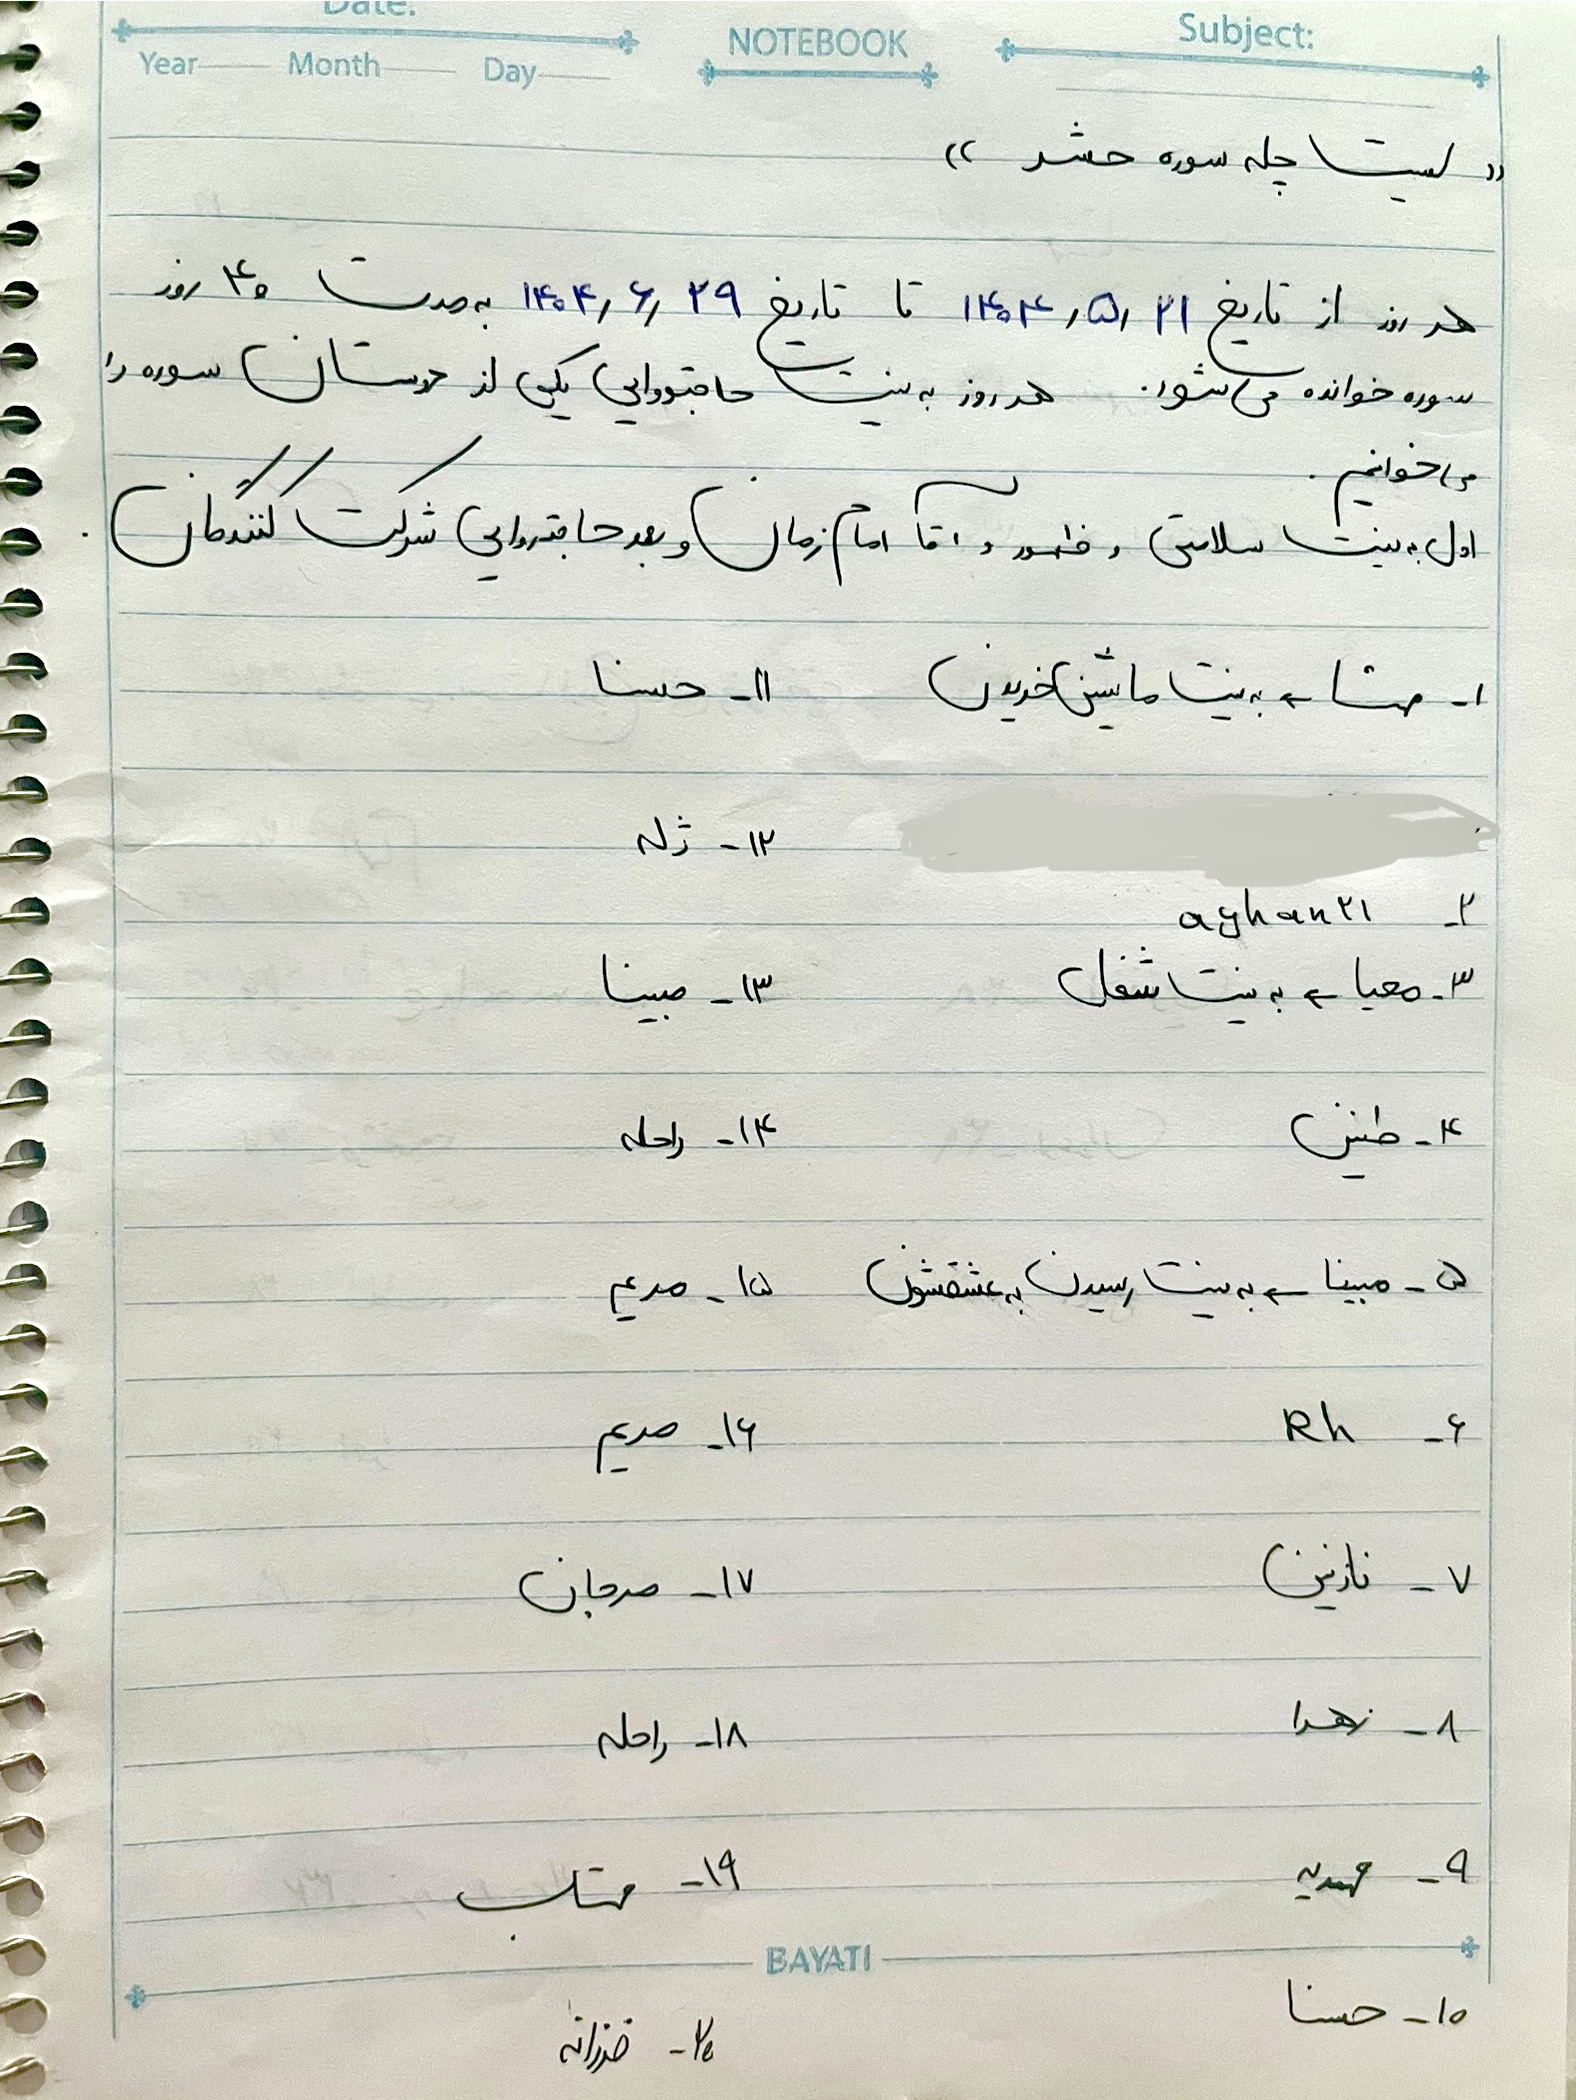 Date:
NOTEBOOK
Subject:
Year Month Day
« لیست چله سوره حشر »
هر روز از تاریخ ۱۴۰۴/۵/۲۱ تا تاریخ ۱۴۰۴/۶/۲۹ به مدت ۴۰ روز
سوره خوانده می‌شود. هر روز به نیت حاجتروایی یکی از دوستان سوره را
می‌خوانیم.
اول به نیت سلامتی و ظهور و آقا امام زمان و بعد حاجتروایی شرکت کنندگان.
۱- مهتا ← به نیت ماشین خریدن
۲- aghan۲۱
۳- محیا ← به نیت شغل
۴- طنین
۵- مبینا ← به نیت رسیدن به عشقشون
۶- Rh
۷- نازنین
۸- زهرا
۹- مهدیه
۱۰- حسنا
۱۱- حسنا
۱۲- ژله
۱۳- مبینا
۱۴- راحله
۱۵- مریم
۱۶- مریم
۱۷- مرجان
۱۸- راحله
۱۹- مهتاب
۲۰- فرزانه
BAYATI